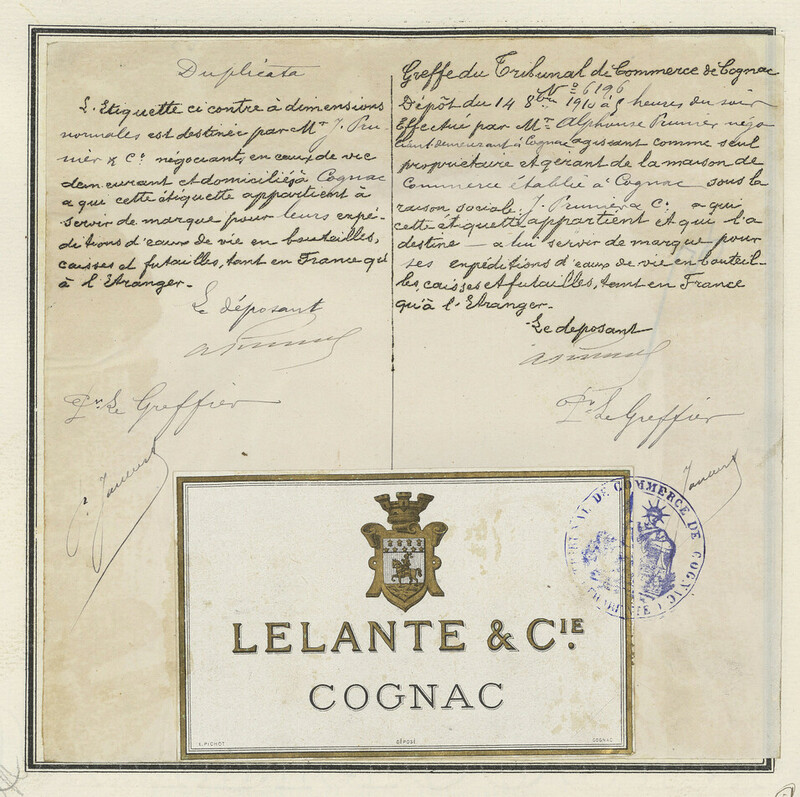 Duplicata
L'Etiquette ci contre à dimensions
normales est destinée par Mr J. Pru-
nier & Co. négociants, en eaux de vie
demeurant et domiciliés à Cognac
a que cette étiquette appartient à
servir de marque pour leurs expé-
ditions d'eaux de vie en bouteilles,
caisses et futailles, tant en France qu'
à l'Etranger.-
Le déposant
Pr Le Greffier
Greffe du Tribunal de Commerce de Cognac
No 6196
Dépôt du 14 8bre 1910 à 5 heures du soir
Effectué par Mr. Alphonse Prunier négo
ciant demeurant à Cognac agissant comme seul
propriétaire et gérant de la maison de
Commerce établie à Cognac sous la
raison sociale. J. Prunier & Co. a qui
cette étiquette appartient et qui l'a
destine — a lui servir de marque pour
ses expéditions d'eaux de vie en bouteil-
les caisses et futailles, tant en France
qu'à l'Etranger.-
Le deposant
Pr Le Greffier
TRIBUNAL DE COMMERCE DE COGNAC
LELANTE & CIE.
COGNAC
DÉPOSÉ
COGNAC